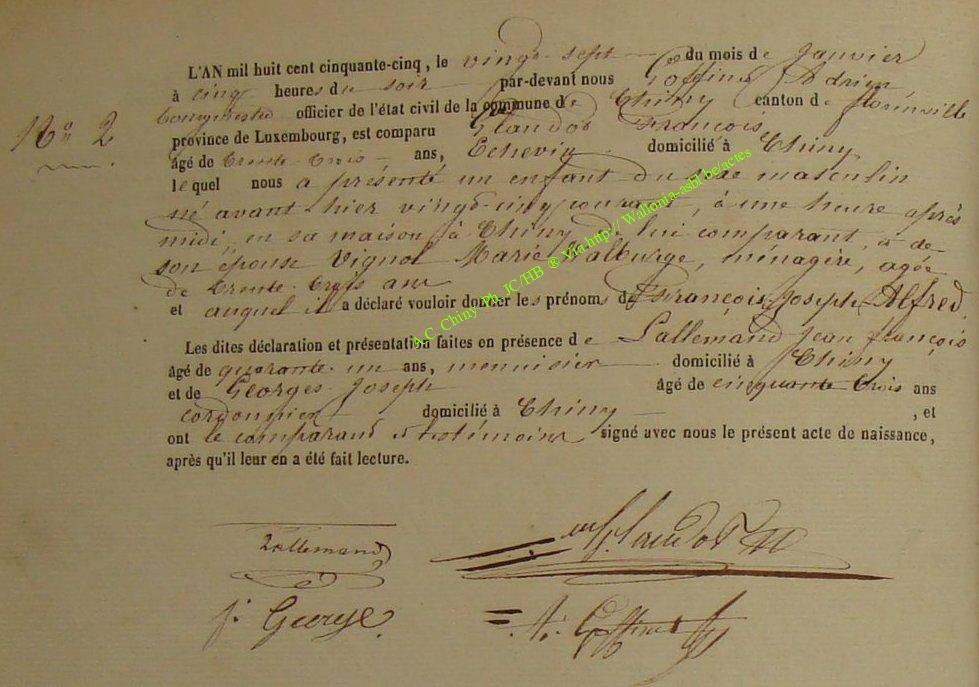 L'AN mil huit cent cinquante-cinq, le vingt-sept du mois de Janvier
à cinq heures du soir par-devant nous Goffinet Adrien
N° 2 bourgmestre officier de l'état civil de la commune de Chiny canton de florenville
province de Luxembourg, est comparu Glaudot François
âgé de trente-trois ans, Echevin domicilié à Chiny
lequel nous a présenté un enfant du sexe masculin
né avant-hier vingt-cinq courant, à une heure après
midi, en sa maison à Chiny de lui comparant, & de
son épouse Vignol Marie Walburge, ménagère, agée
de trente-trois ans
et auquel il a déclaré vouloir donner les prénoms de François Joseph Alfred
Les dites déclaration et présentation faites en présence de Lallemand Jean françois
âgé de quarante-un ans, menuisier domicilié à Chiny
et de Georges Joseph âgé de cinquante-trois ans
cordonnier domicilié à Chiny , et
ont le comparant et témoins signé avec nous le présent acte de naissance,
après qu'il leur en a été fait lecture.
Lallemand
Glaudot
j. George
A. Goffinet
A.C. Chiny Ph JC/HB ® Via http:// Wallonia-asbl.be/actes